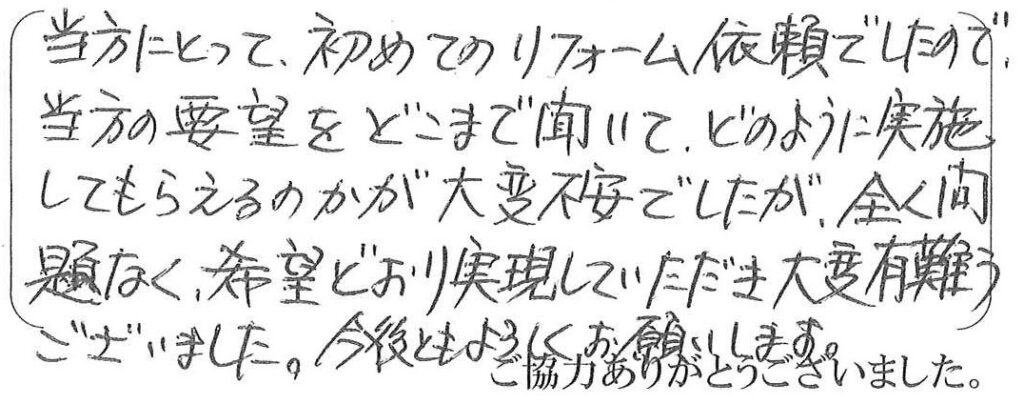 当方にとって、初めてのリフォーム依頼でしたので、
当方の要望をどこまで聞いて、どのように実施
してもらえるのかが大変不安でしたが、全く問
題なく、希望どおり実現していただき大変有難う
ございました。今後ともよろしくお願いします。
ご協力ありがとうございました。